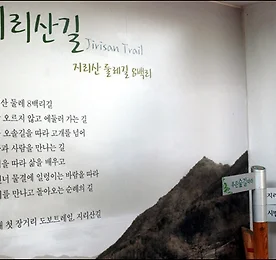 지리산길
Jirisan Trail
지리산 둘레길 8백리
산 둘레 8백리길
오르지 않고 에둘러 가는 길
오솔길을 따라 고개를 넘어
과 사람을 만나는 길
을 따라 삶을 배우고
너 물결에 일렁이는 바람을 따라
를 만나고 돌아오는 순례의 길
첫 장거리 도보트레일, 지리산길